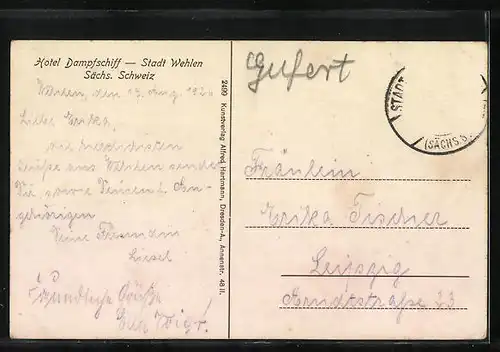 Hotel Dampfschiff — Stadt Wehlen
Sächs. Schweiz
Wehlen, den 13. Aug. 192
Liebe Erika,
die herzlichsten
Grüße aus Wehlen sendet
Dir, sowie Deinen l. An-
gehörigen
Deine Freundin
Liesel
Freundliche Grüße
2409 Kunstverlag Alfred Hartmann, Dresden-A., Annenstr. 48 II.
STADT
(SÄCHS.S.
Fräulein
Erika Fischer
Leipzig
Arndtstraße 23